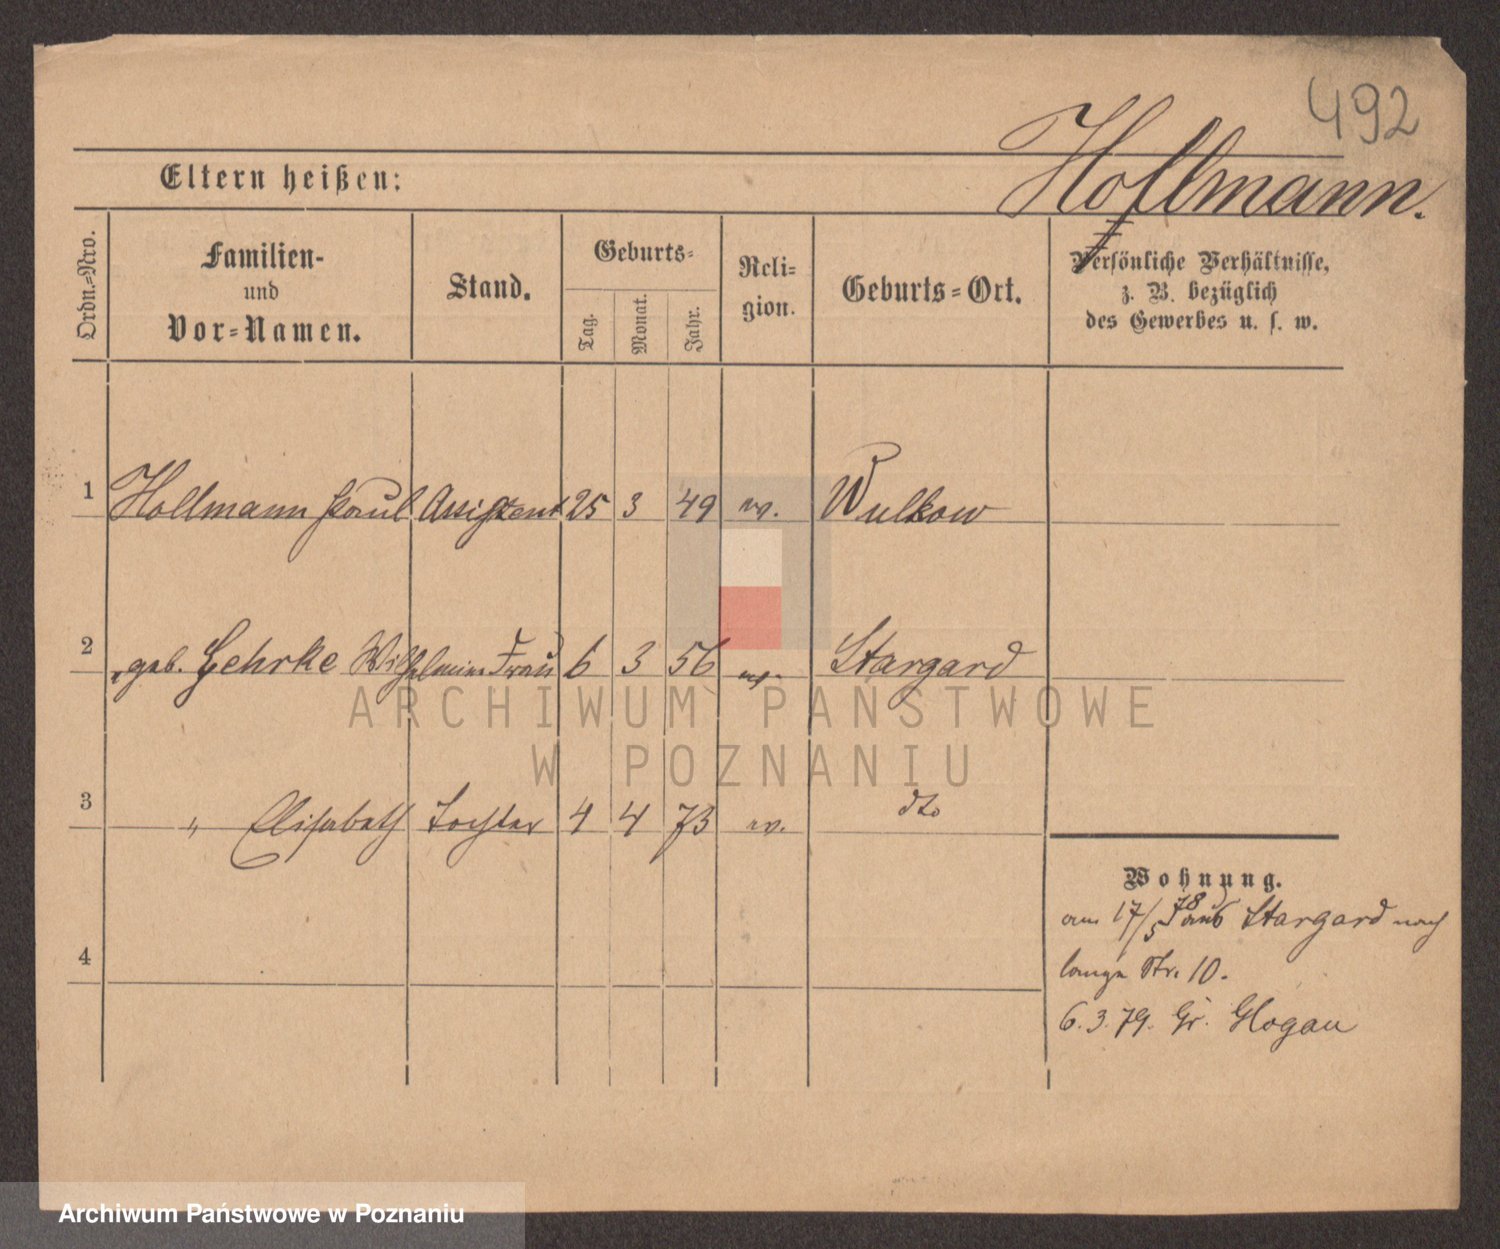 492
Hollmann.
Eltern heißen:
Ordn.=Nro.
Familien-
und
Vor=Namen.
Stand.
Geburts=
Tag.
Monat.
Jahr.
Reli=
gion.
Geburts=Ort.
Persönliche Verhältnisse,
z. B. bezüglich
des Gewerbes u. s. w.
1 Hollmann Paul Assistent 25 3 49 ev. Wulkow
2 geb. Gehrke Wilhelmine Frau 6 3 56 ev. Stargard
3 " Elisabeth Tochter 4 4 73 ev. dto
4
Wohnung.
am 17/5 78 aus Stargard nach
lange Str. 10.
6.3.79. Gr. Glogau
ARCHIWUM PAŃSTWOWE
W POZNANIU
Archiwum Państwowe w Poznaniu